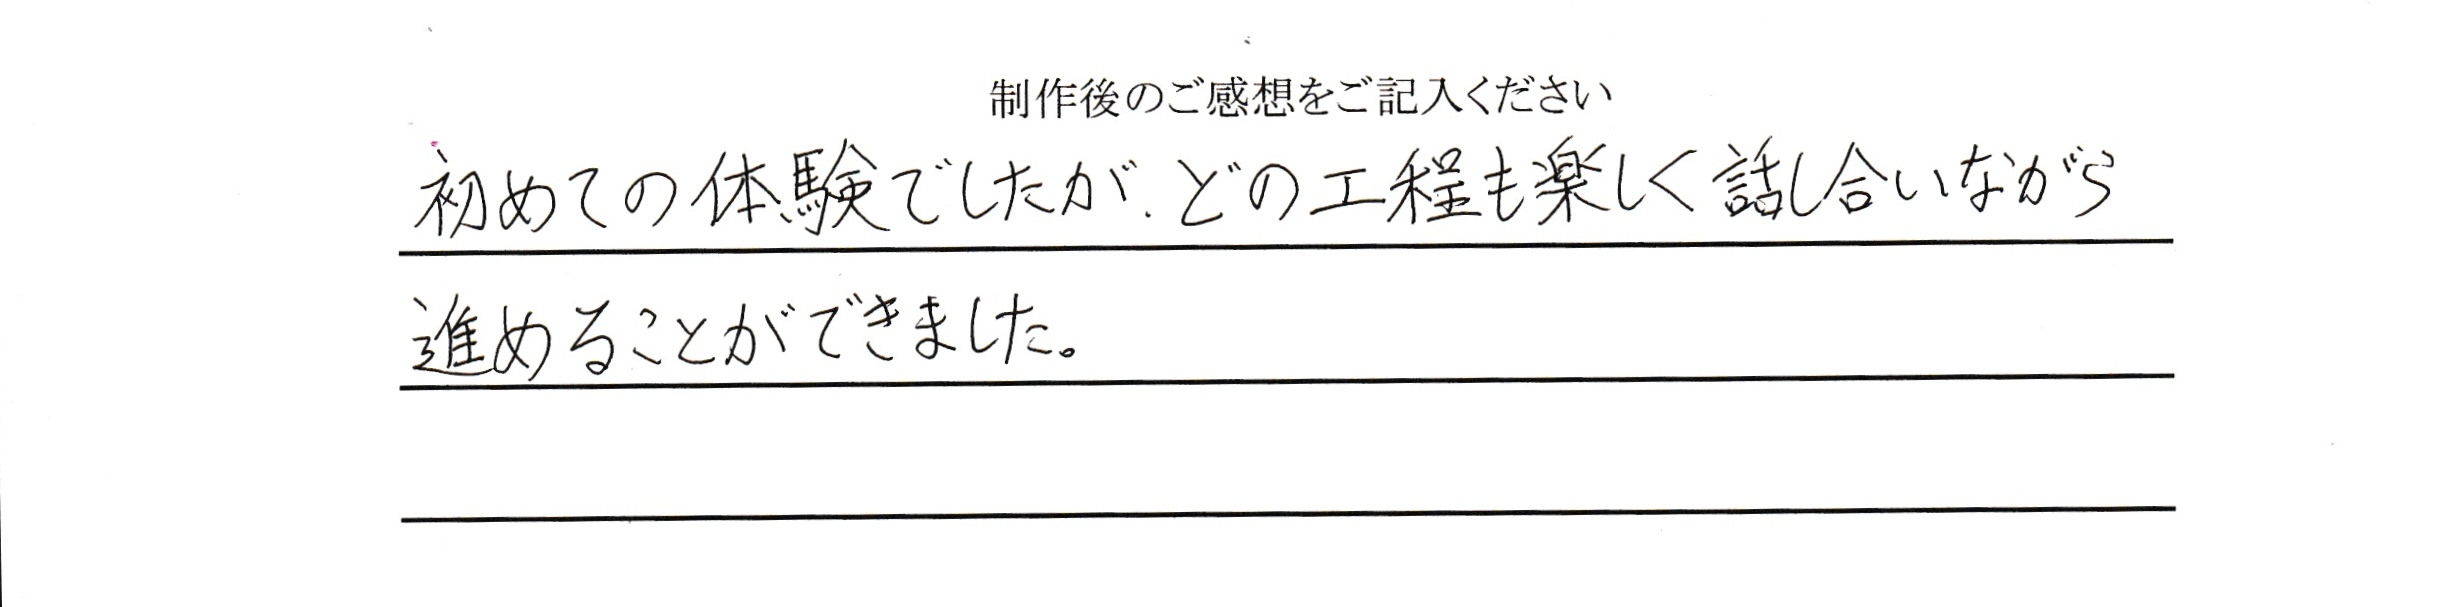 制作後のご感想をご記入ください
初めての体験でしたが、どの工程も楽しく話し合いながら
進めることができました。